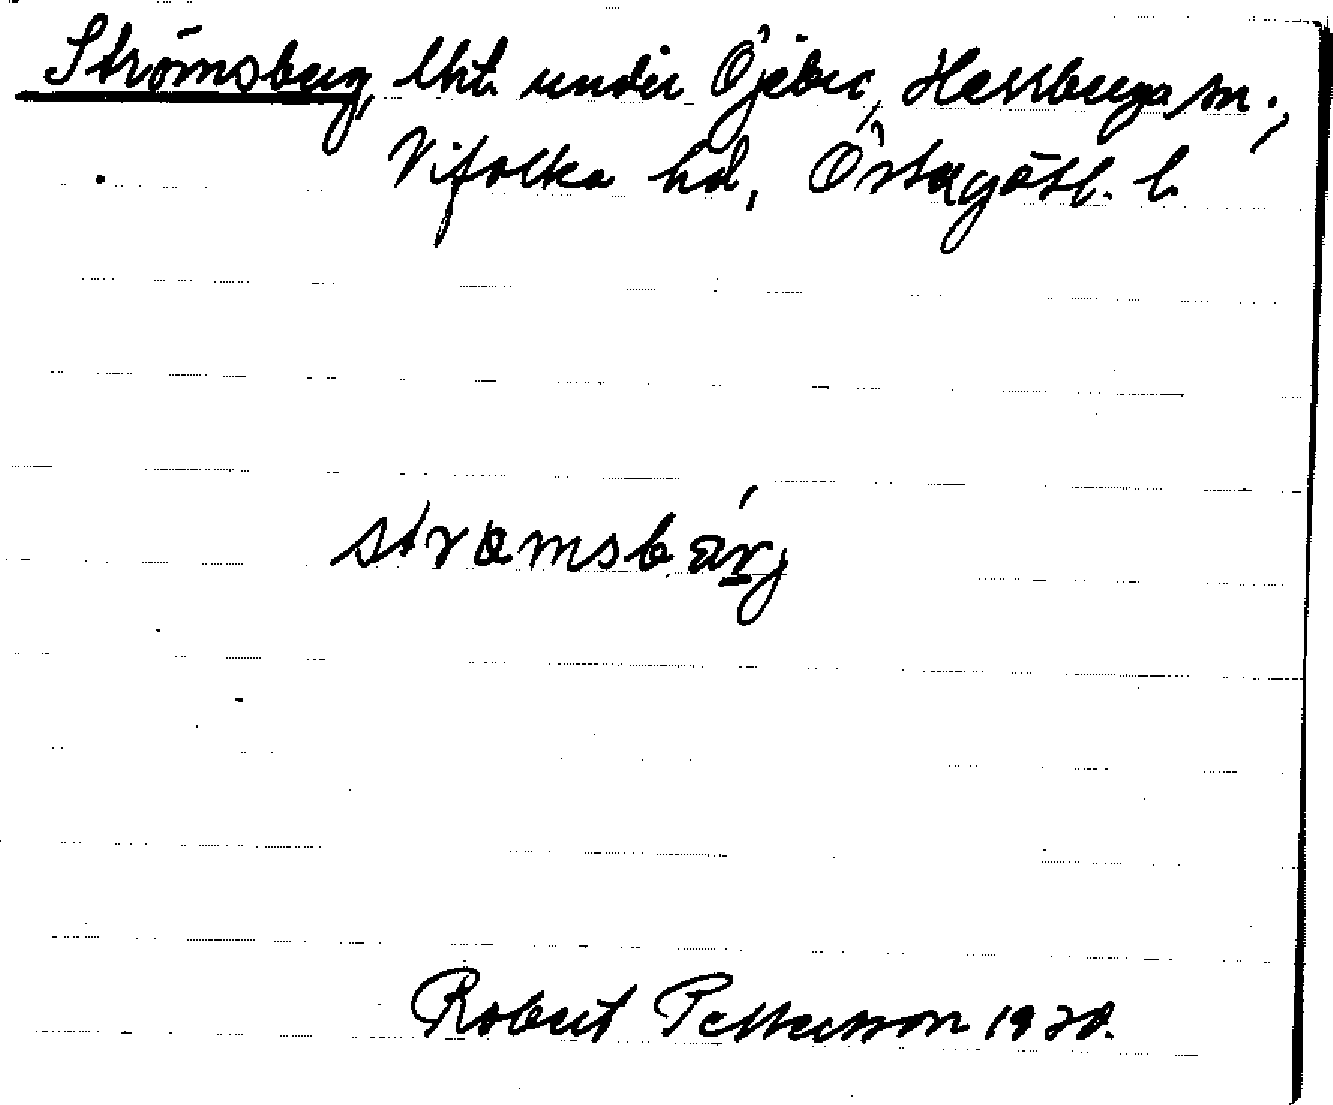 Strömsberg, lht. under Öjebro, Herrberga sn.,
Vifolka hd, Östergötl. l.
strömsbärj
Robert Pettersson 1928.